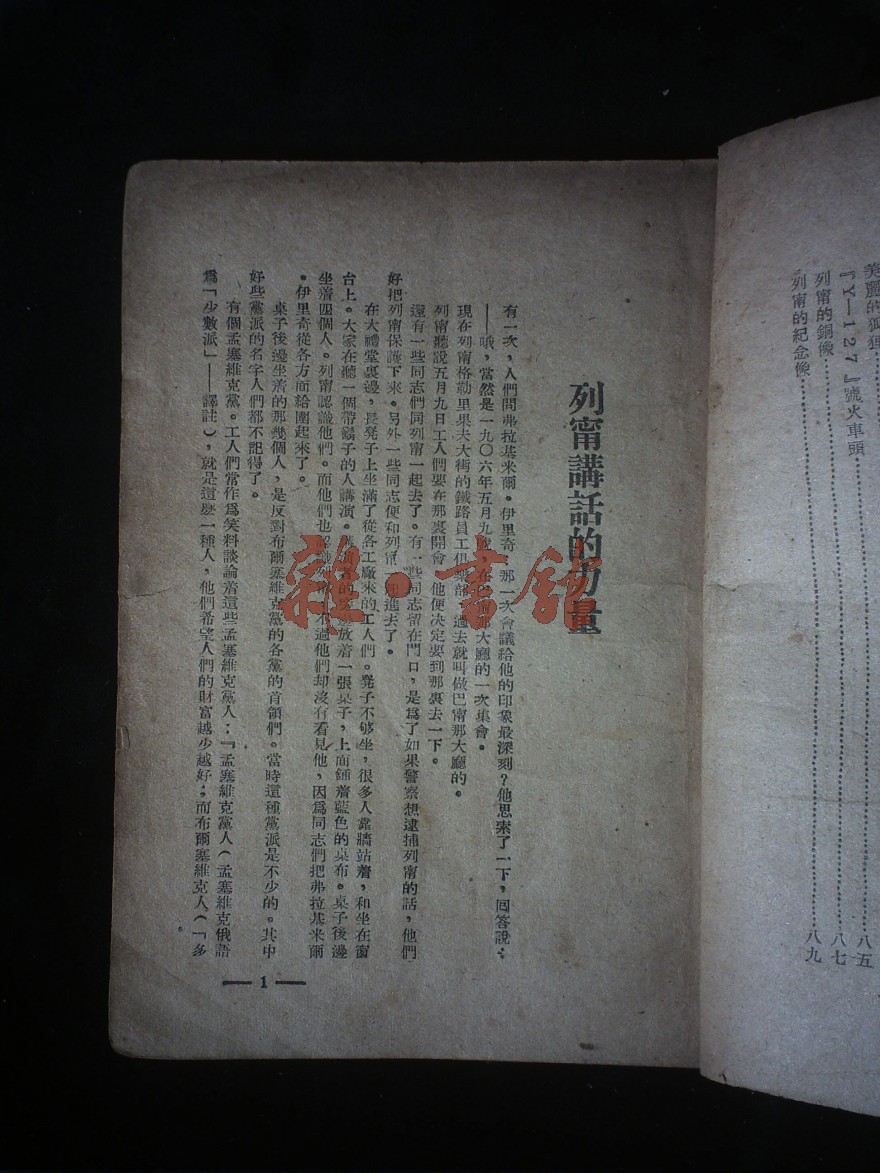 美麗的狐狸
『Y—127』號火車頭……八五
列甯的銅像……八七
列甯的紀念像……八九
列甯講話的力量
有一次，人們問弗拉基米爾。伊里奇：那一次會議給他的印象最深刻？他思索了一下，囘答說：
——哦，當然是一九〇六年五月九號，在巴甯那大廳的一次集會。
現在列甯格勒里果夫大街的鐵路員工俱樂部，過去就叫做巴甯那大廳的。
列甯聽說五月九日工人們要在那裏開會，他便決定要到那裏去一下。
還有一些同志們同列甯一起去了。有一些同志留在門口，是爲了如果警察想逮捕列甯的話，他們
好把列甯保護下來。另外一些同志便和列甯一起進去了。
在大禮堂裏邊，長凳子上坐滿了從各工廠來的工人們。凳子不够坐，很多人靠牆站着，和坐在窗
台上。大家在聽一個帶鬍子的人講演。講演者的旁邊放着一張桌子，上面鋪着藍色的桌布。桌子後邊
坐着四個人。列甯認識他們。而他們也認識列甯，不過他們却沒有看見他，因爲同志們把弗拉基米爾
。伊里奇從各方面給圍起來了。
桌子後邊坐着的那幾個人，是反對布爾塞維克黨的各黨的首領們。當時這種黨派是不少的。其中
好些黨派的名字人們都不記得了。
有個孟塞維克黨。工人們當作爲笑料談論着這些孟塞維克黨人：『孟塞維克黨人（孟塞維克俄語
爲「少數派」——譯註），就是這麽一種人，他們希望人們的財富越少越好；而布爾塞維克人（「多
— 1 —
雜·書館